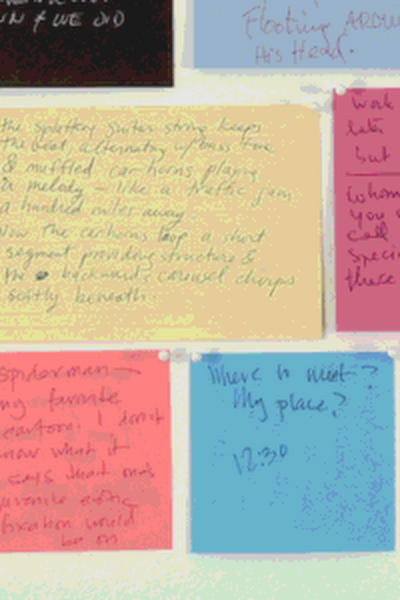 WN & WE DID
Floating AROU
His Head.
the splottery guitar string keeps
the beat alternating w/ bass tone
& muffled car horns playing
a melody - like a traffic jam
a hundred miles away
Now the carhorns loop a short
segment providing structure &
the backwards carousel chirps
softly beneath.
work
late
but
whom
you
call
speci
these
spiderman —
my favorite
cartoon. I don't
know what it
says that one's
juvenile erotic
fixation would
be on
Where to meet?
My place?
12:30